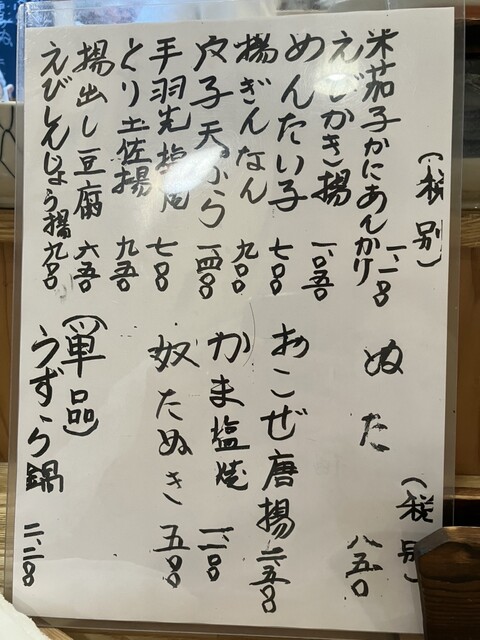 (税別)
米茄子かにあんかけ 一、一〇〇
えびかき揚 一、〇五〇
めんたい子 七〇〇
揚ぎんなん 九〇〇
穴子天ぷら 一、四〇〇
手羽先塩焼 七〇〇
とり土佐揚 九五〇
揚出し豆腐 六五〇
えびしんじょう揚 九〇〇
(税別)
ぬた 八五〇
おこぜ唐揚
かま塩焼
奴たぬき 五〇〇
(単品)
うずら鍋 二、二〇〇